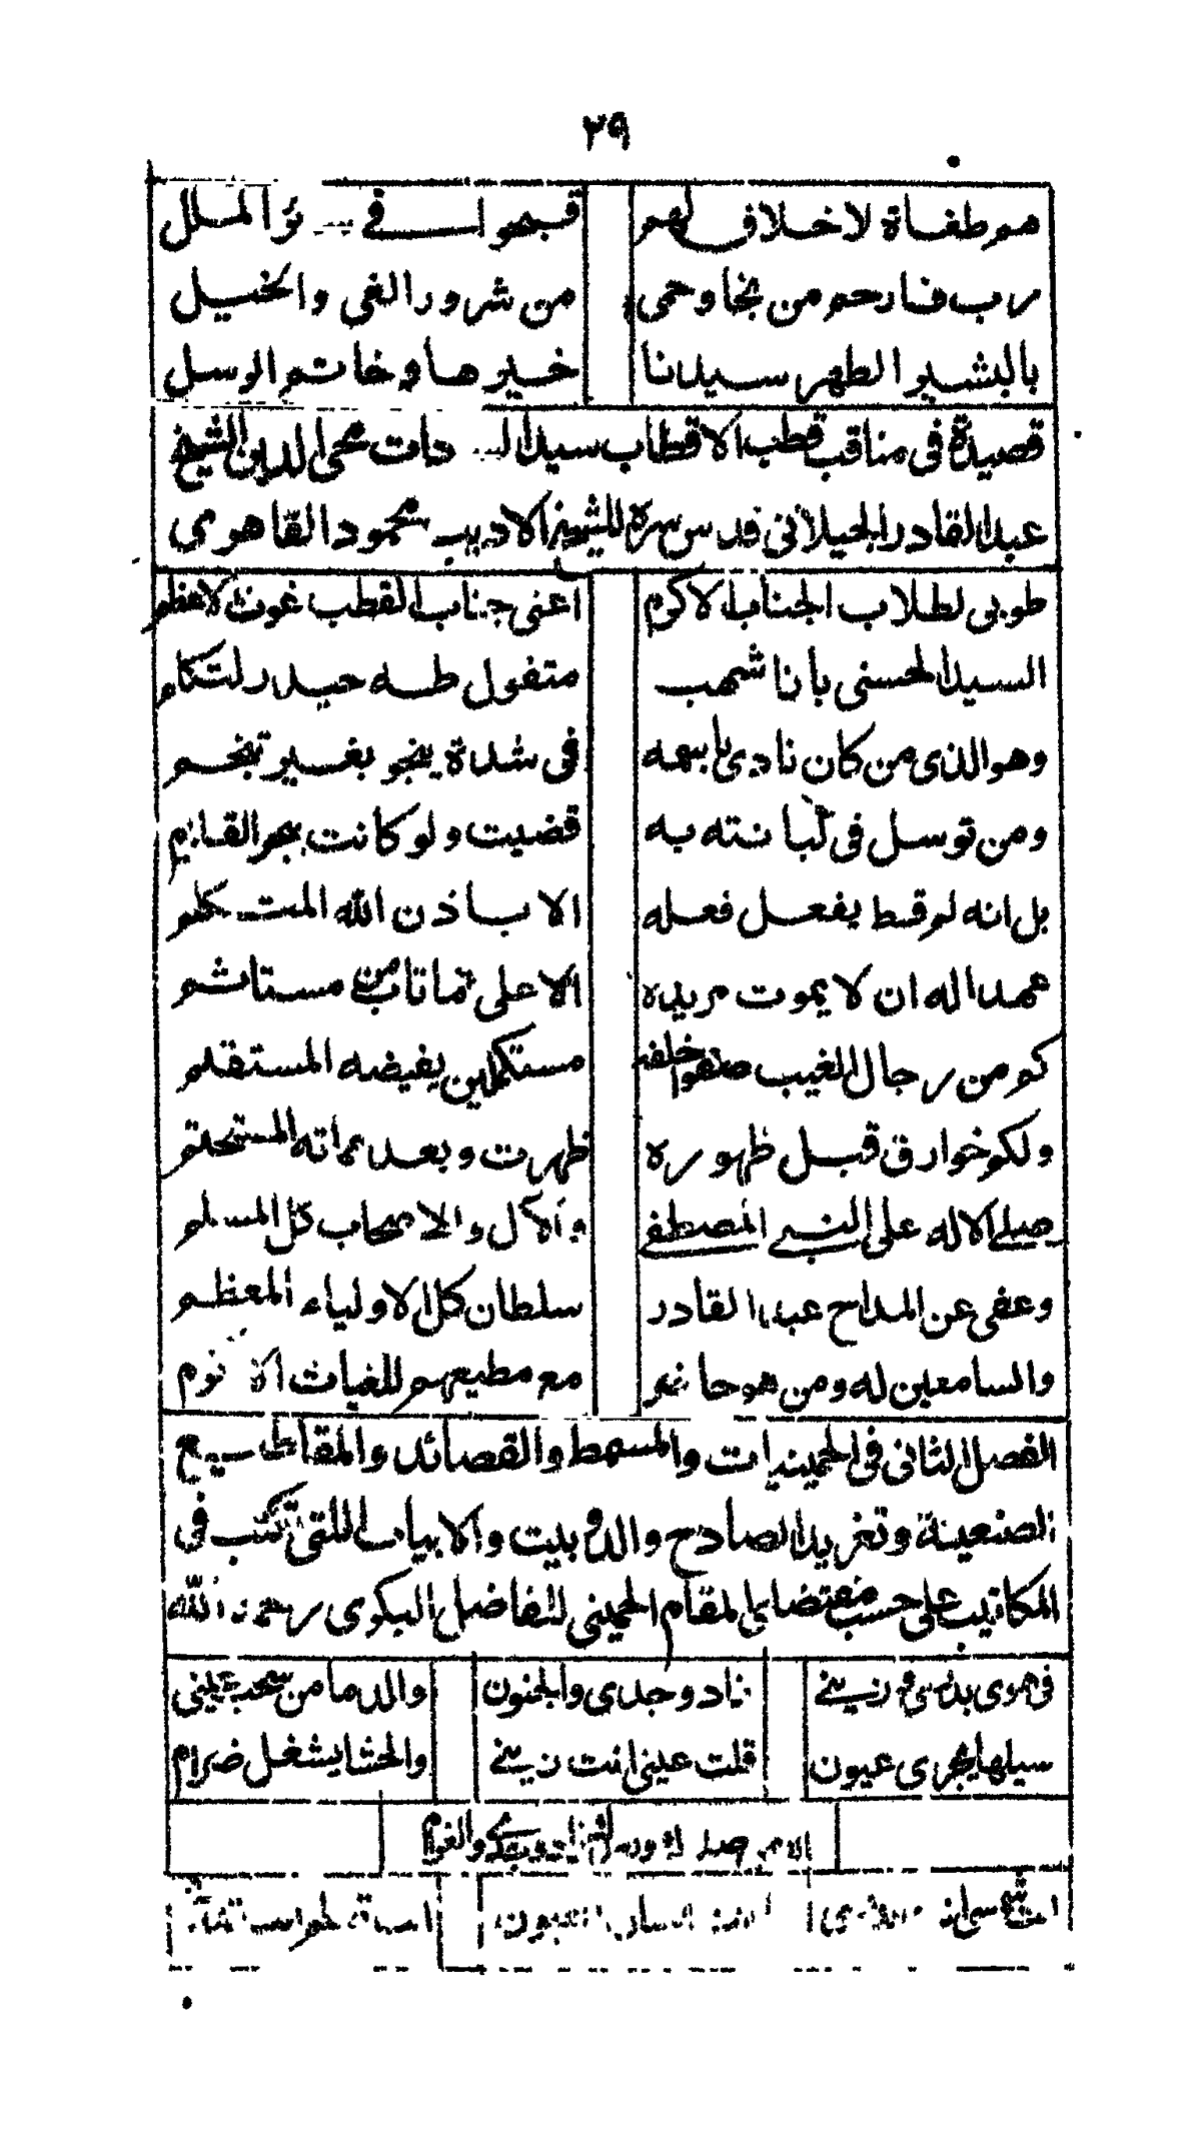 ٢٩
هم طغاة لا خلاف لهم قبحوا في نؤ الملل
رب فارحم من نجا وحمى من شرور الغي والخيل
بالبشير الطهر سيدنا خيرها وخاتم الرسل
قصيدة في مناقب قطب الاقطاب سيد السادات محي الدين الشيخ
عبد القادر الجيلاني قدس سره للشيخ الاديب محمود القاهري
طوبى لطلاب الجناب الاكرم اعني جناب القطب غوث الاعظم
السيد الحسني بانا شهب متفول طه حيدر
وهو الذي من كان نادى باسمه في شدة ينجو بغير تفخم
ومن توسل في لبانته به قضيت ولو كانت ببحر القلزم
بل انه لم قط يفعل فعله الا باذن الله المتكلم
عهد اله ان لا يموت مريده الا على ما تاب من مستاشم
كم من رجال الغيب صفوا خلفه مستكملين بفيضه المستقلم
ولكم خوارق قبل ظهوره ظهرت وبعد مماته المستحتم
صلى الاله على النبي المصطفى والآل والاصحاب كل المسلم
وعفى عن المداح عبد القادر سلطان كل الاولياء المعظم
والسامعين له ومن هو حاضر مع مطيعهم للغياث
الفصل الثاني في الحمينيات والمسمط والقصائد والمقاطيع
الصنعينة وتغريد الصادح والدوبيت والابيات اللتي تكتب في
المكاتيب على حسب مقتضاى المقام الحميني للفاضل البكري رحمه الله
في هوى بدري وزيني زاد وجدي والجنون والدما من سحب عيني
سيلها يجري عيون قلت عيني انت زيني والحشا يشغل ضرام
والغرام